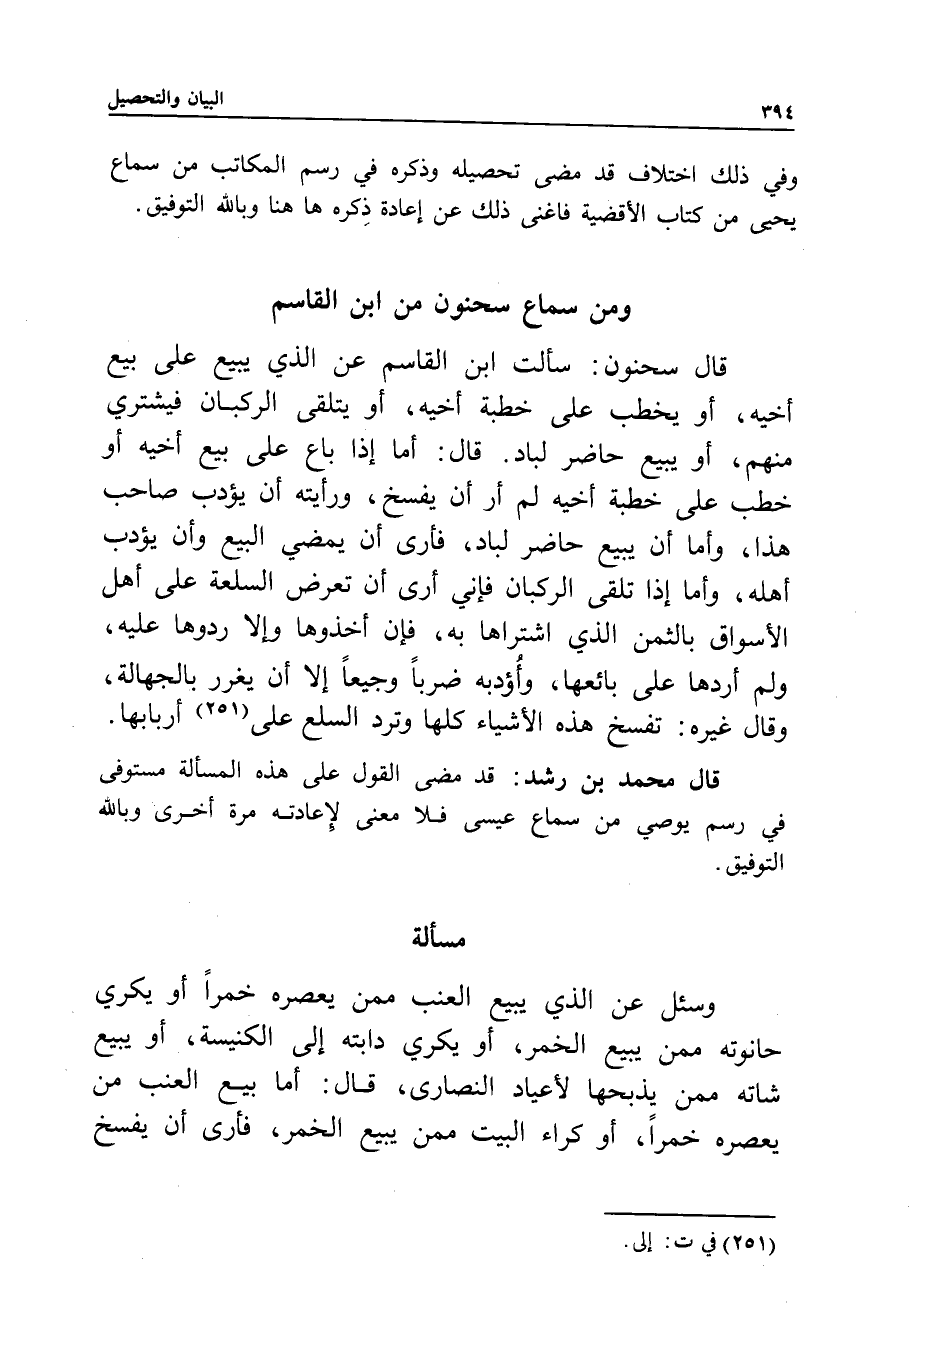 ٣٩٤ البيان والتحصيل
وفي ذلك اختلاف قد مضى تحصيله وذكره في رسم المكاتب من سماع
يحيى من كتاب الأقضية فاغنى ذلك عن إعادة ذِكره ها هنا وبالله التوفيق.
ومن سماع سحنون من ابن القاسم
قال سحنون: سألت ابن القاسم عن الذي يبيع على بيع
أخيه، أو يخطب على خطبة أخيه، أو يتلقى الركبان فيشتري
منهم، أو يبيع حاضر لباد. قال: أما إذا باع على بيع أخيه أو
خطب على خطبة أخيه لم أر أن يفسخ، ورأيته أن يؤدب صاحب
هذا، وأما أن يبيع حاضر لباد، فأرى أن يمضي البيع وأن يؤدب
أهله، وأما إذا تلقى الركبان فإني أرى أن تعرض السلعة على أهل
الأسواق بالثمن الذي اشتراها به، فإن أخذوها وإلا ردوها عليه،
ولم أردها على بائعها، وأُؤدبه ضرباً وجيعاً إلا أن يغرر بالجهالة،
وقال غيره: تفسخ هذه الأشياء كلها وترد السلع على(٢٥١) أربابها.
قال محمد بن رشد: قد مضى القول على هذه المسألة مستوفى
في رسم يوصي من سماع عيسى فلا معنى لإعادته مرة أخرى وبالله
التوفيق.
مسألة
وسئل عن الذي يبيع العنب ممن يعصره خمراً أو يكري
حانوته ممن يبيع الخمر، أو يكري دابته إلى الكنيسة، أو يبيع
شاته ممن يذبحها لأعياد النصارى، قال: أما بيع العنب من
يعصره خمراً، أو كراء البيت ممن يبيع الخمر، فأرى أن يفسخ
(٢٥١) في ت: إلى.